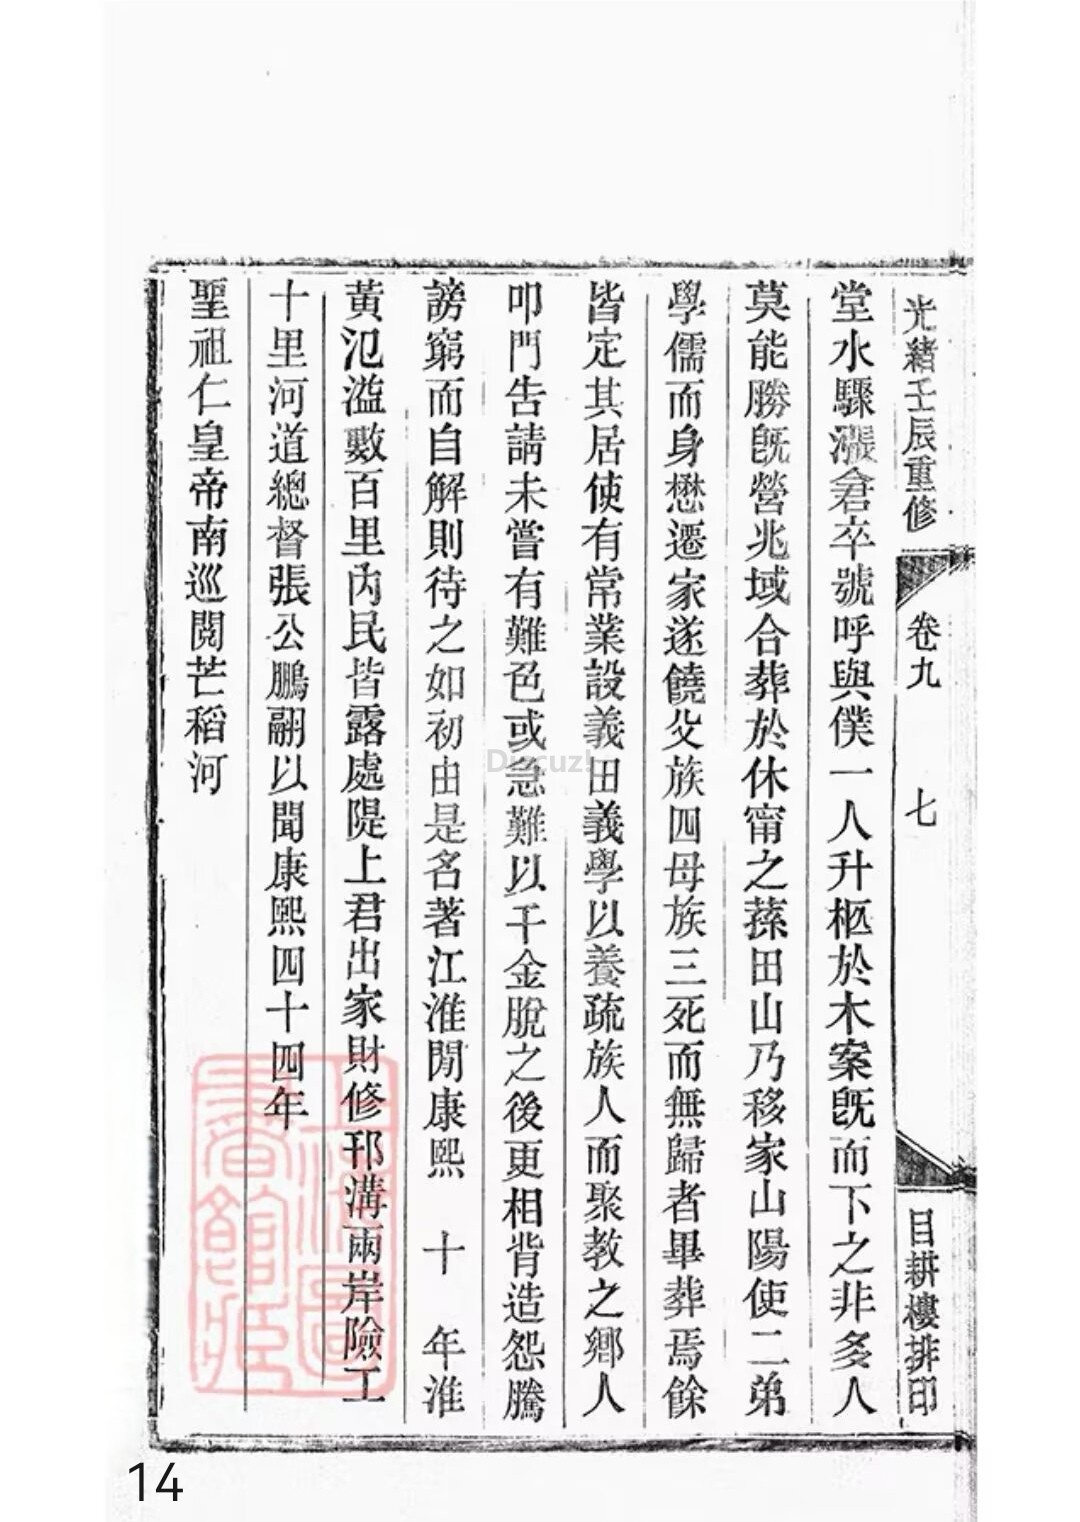 光緒壬辰重修 卷九 七 目耕樓排印
堂水驟漲倉卒號呼與僕一人升柩於木案旣而下之非多人
莫能勝旣營兆域合葬於休甯之蓀田山乃移家山陽使二弟
學儒而身懋遷家遂饒父族四母族三死而無歸者畢葬焉餘
皆定其居使有常業設義田義學以養疏族人而聚教之鄉人
叩門告請未嘗有難色或急難以千金脫之後更相背造怨騰
謗窮而自解則待之如初由是名著江淮閒康熙 十 年淮
黃氾溢數百里內民皆露處隄上君出家財修邗溝兩岸險工
十里河道總督張公鵬翮以聞康熙四十四年
聖祖仁皇帝南巡閱芒稻河
上海圖
書館藏
Discuz!
14